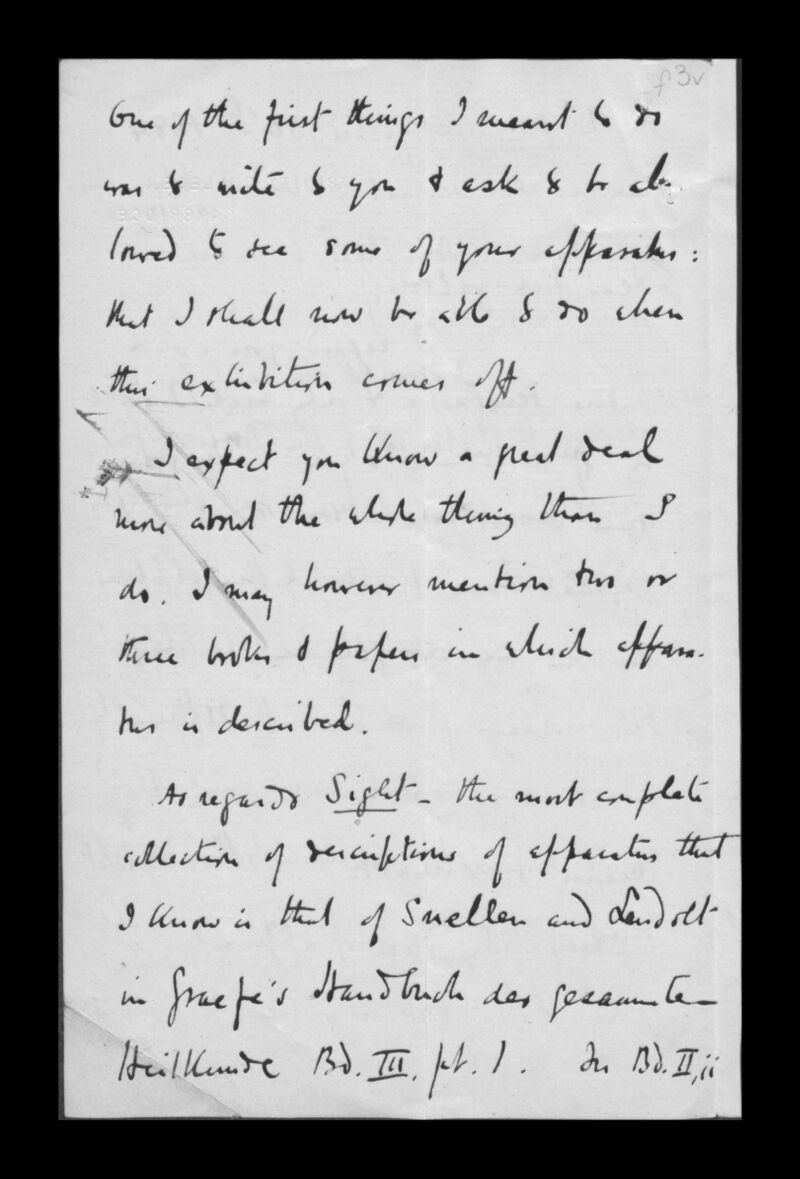 f 3v
One of the first things I meant to do
was to write to you & ask to be al-
lowed to see some of your apparatus:
that I shall now be able to do when
this exhibition comes off.
I expect you know a great deal
more about the whole thing than I
do. I may however mention two or
three books & papers in which appara-
tus is described.
As regards Sight - the most complete
collection of descriptions of apparatus that
I know is that of Snellen and Landolt
in Graefe's Handbuch der gesammten
Heilkunde Bd. III, pt. 1. In Bd. II, ii